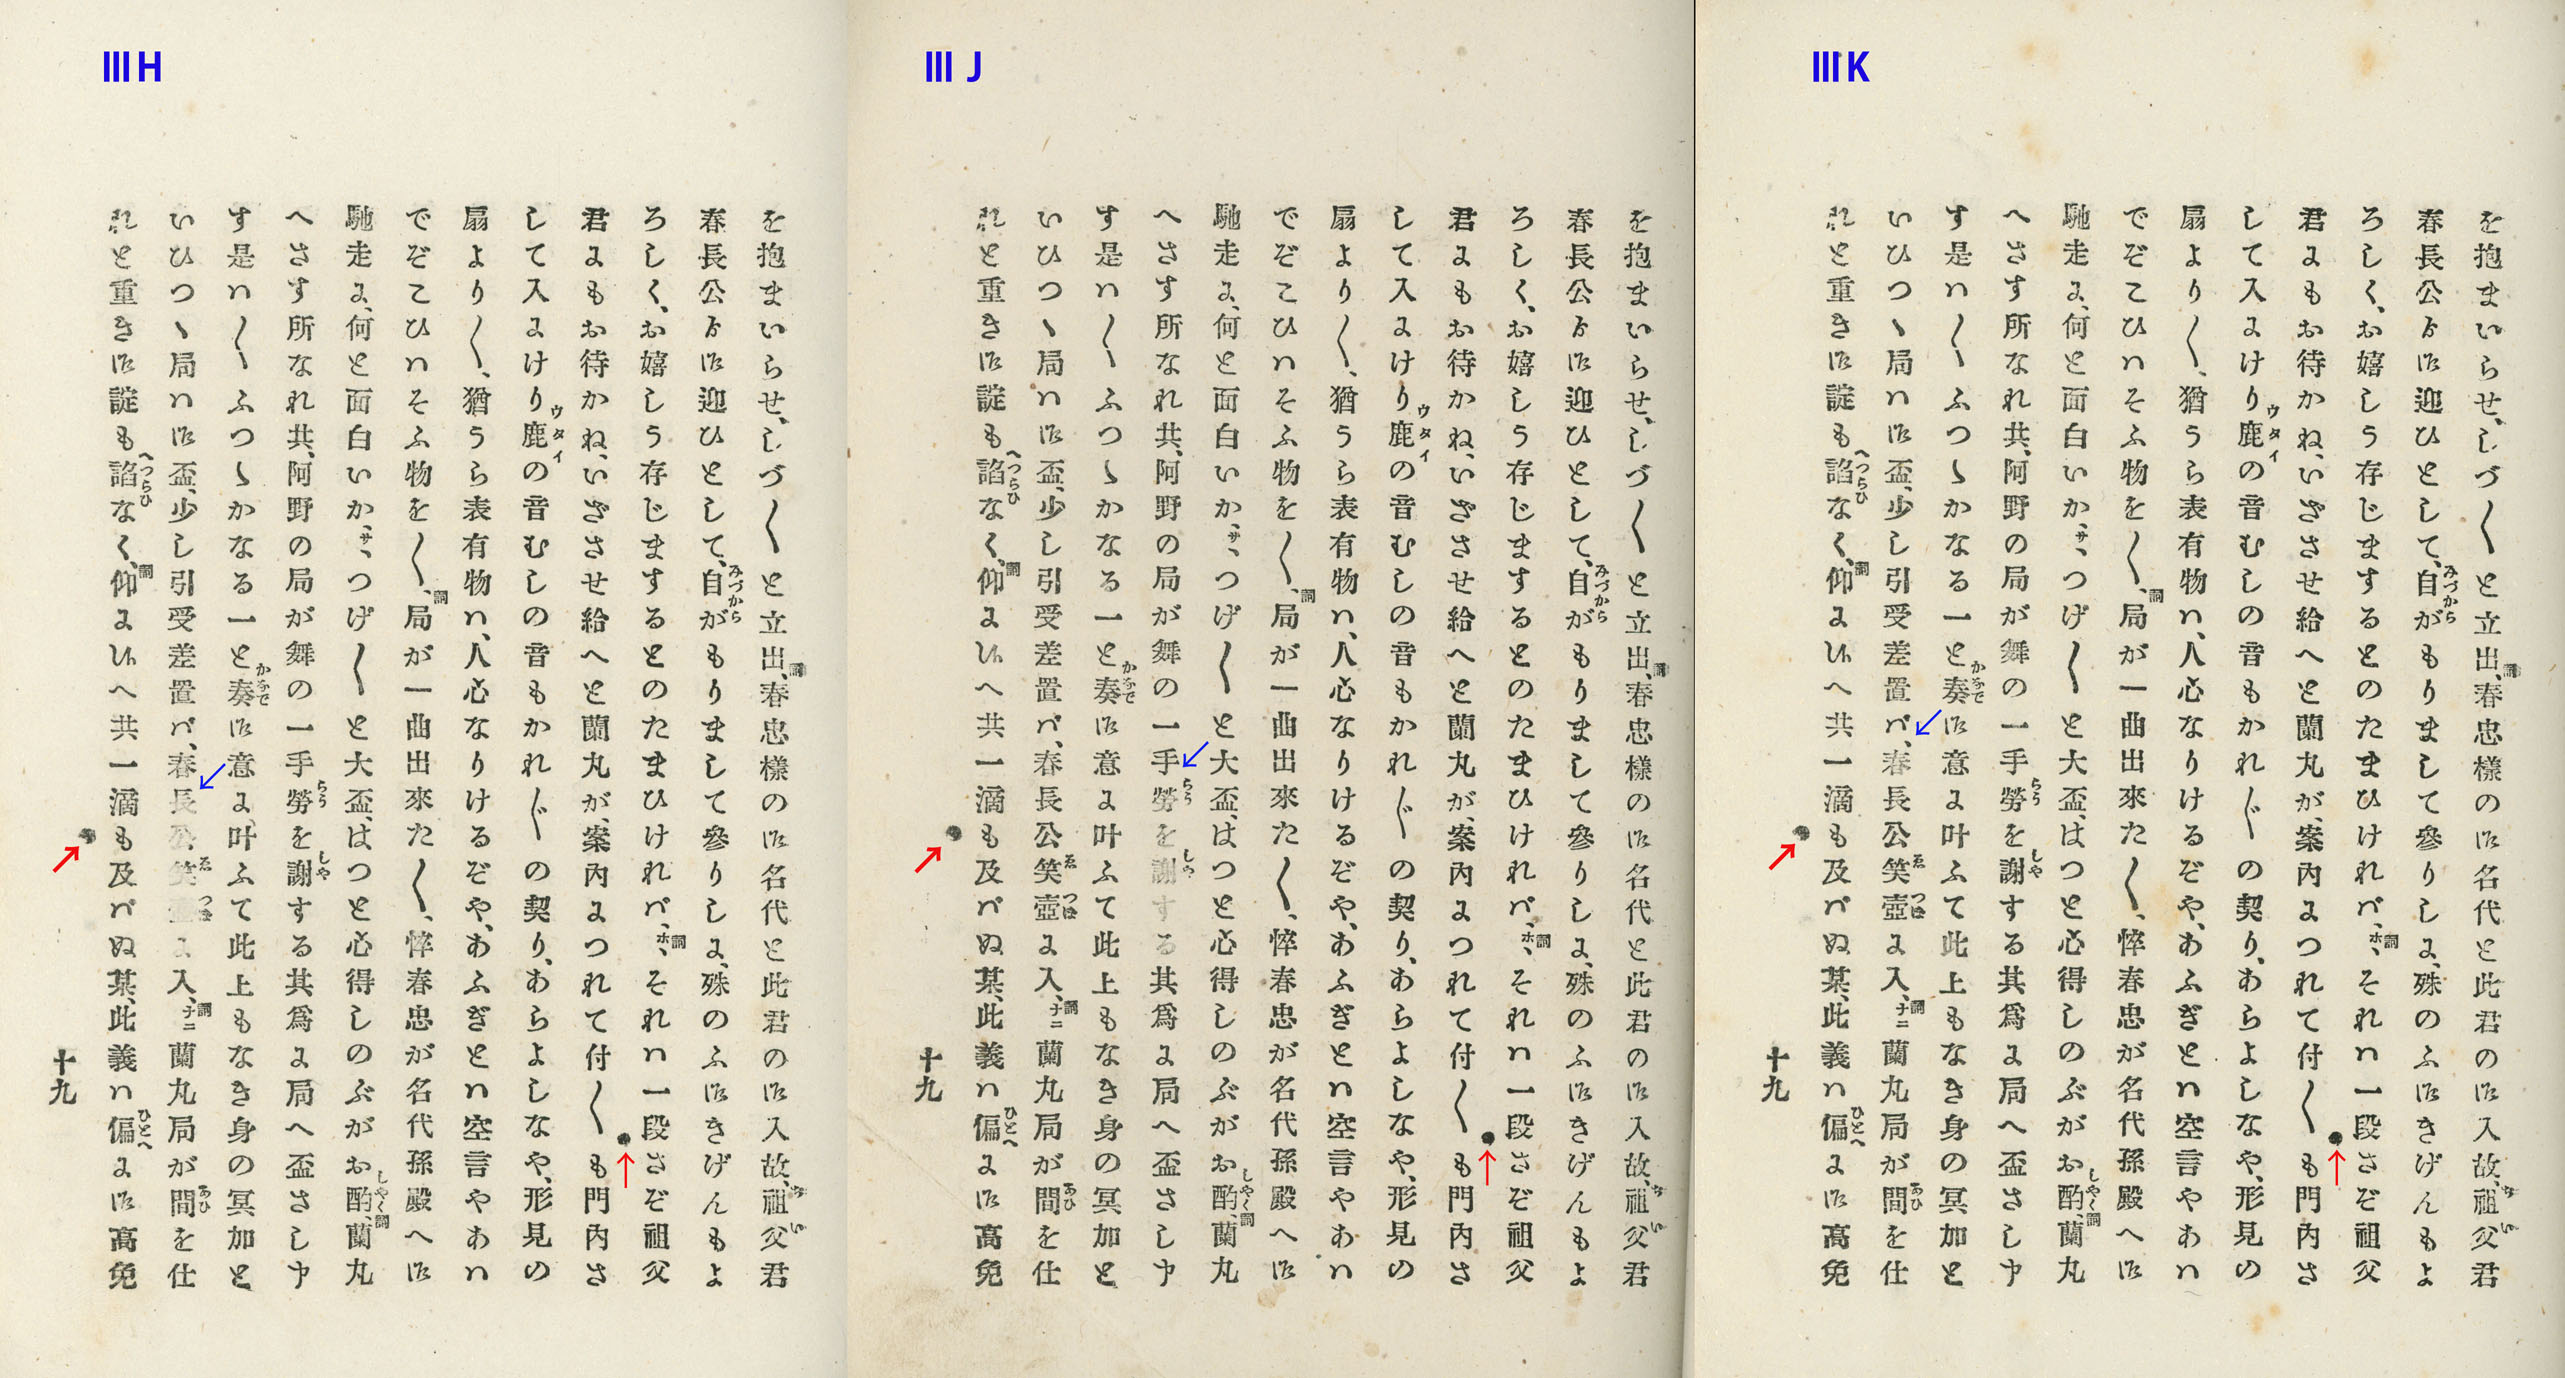 III H
を抱まいらせ、しづ〳〵と立出、春忠樣の御名代と此君の御入故、祖父君
春長公ゟ御迎ひとして、自がもりまして參りしに、殊のふ御きげんもよ
ろしく、お嬉しう存じまするとのたまひけれバ、ホヽそれハ一段さぞ祖父
君にもお待かね、いざさせ給へと蘭丸が、案内につれて付〳〵も門内さ
して入にけり鹿の音むしの音もかれ〴〵の契り、あらよしなや、形見の
扇より〳〵、猶うら表有物ハ、人心なりけるぞや、あふぎとハ空言やあハ
でぞこひハそふ物を〳〵、局が一曲出來た〳〵、悴春忠が名代孫殿へ御
馳走に、何と面白いか、サヽつげ〳〵と大盃、はつと心得しのぶがお酌、蘭丸
へさす所なれ共、阿野の局が舞の一手勞を謝する其爲に局へ盃さし申
す是ハ〳〵ふつゝかなる一と奏御意に、叶ふて此上もなき身の冥加と
いひつゝ局ハ御盃、少し引受差置バ、春長公笑壺に入、ナニ蘭丸局が間を仕
れと重き御諚も諂なく、仰に候へ共一滴も及バぬ某、此義ハ偏に御高免
十九
III J
を抱まいらせ、しづ〳〵と立出、春忠樣の御名代と此君の御入故、祖父君
春長公ゟ御迎ひとして、自がもりまして參りしに、殊のふ御きげんもよ
ろしく、お嬉しう存じまするとのたまひけれバ、ホヽそれハ一段さぞ祖父
君にもお待かね、いざさせ給へと蘭丸が、案内につれて付〳〵も門内さ
して入にけり鹿の音むしの音もかれ〴〵の契り、あらよしなや、形見の
扇より〳〵、猶うら表有物ハ、人心なりけるぞや、あふぎとハ空言やあハ
でぞこひハそふ物を〳〵、局が一曲出來た〳〵、悴春忠が名代孫殿へ御
馳走に、何と面白いか、サヽつげ〳〵と大盃、はつと心得しのぶがお酌、蘭丸
へさす所なれ共、阿野の局が舞の一手勞を謝する其爲に局へ盃さし申
す是ハ〳〵ふつゝかなる一と奏御意に叶ふて此上もなき身の冥加と
いひつゝ局ハ御盃、少し引受差置バ、春長公笑壺に入、ナニ蘭丸局が間を仕
れと重き御諚も諂なく、仰に候へ共一滴も及バぬ某、此義ハ偏に御高免
十九
III K
を抱まいらせ、しづ〳〵と立出、春忠樣の御名代と此君の御入故、祖父君
春長公ゟ御迎ひとして、自がもりまして參りしに、殊のふ御きげんもよ
ろしく、お嬉しう存じまするとのたまひけれバ、ホヽそれハ一段さぞ祖父
君にもお待かね、いざさせ給へと蘭丸が、案内につれて付〳〵も門内さ
して入にけり鹿の音むしの音もかれ〴〵の契り、あらよしなや、形見の
扇より〳〵、猶うら表有物ハ、人心なりけるぞや、あふぎとハ空言やあハ
でぞこひハそふ物を〳〵、局が一曲出來た〳〵、悴春忠が名代孫殿へ御
馳走に、何と面白いか、サヽつげ〳〵と大盃、はつと心得しのぶがお酌、蘭丸
へさす所なれ共、阿野の局が舞の一手勞を謝する其爲に局へ盃さし申
す是ハ〳〵ふつゝかなる一と奏御意に叶ふて此上もなき身の冥加と
いひつゝ局ハ御盃、少し引受差置バ、春長公笑壺に入、ナニ蘭丸局が間を仕
れと重き御諚も諂なく、仰に候へ共一滴も及バぬ某、此義ハ偏に御高免
十九